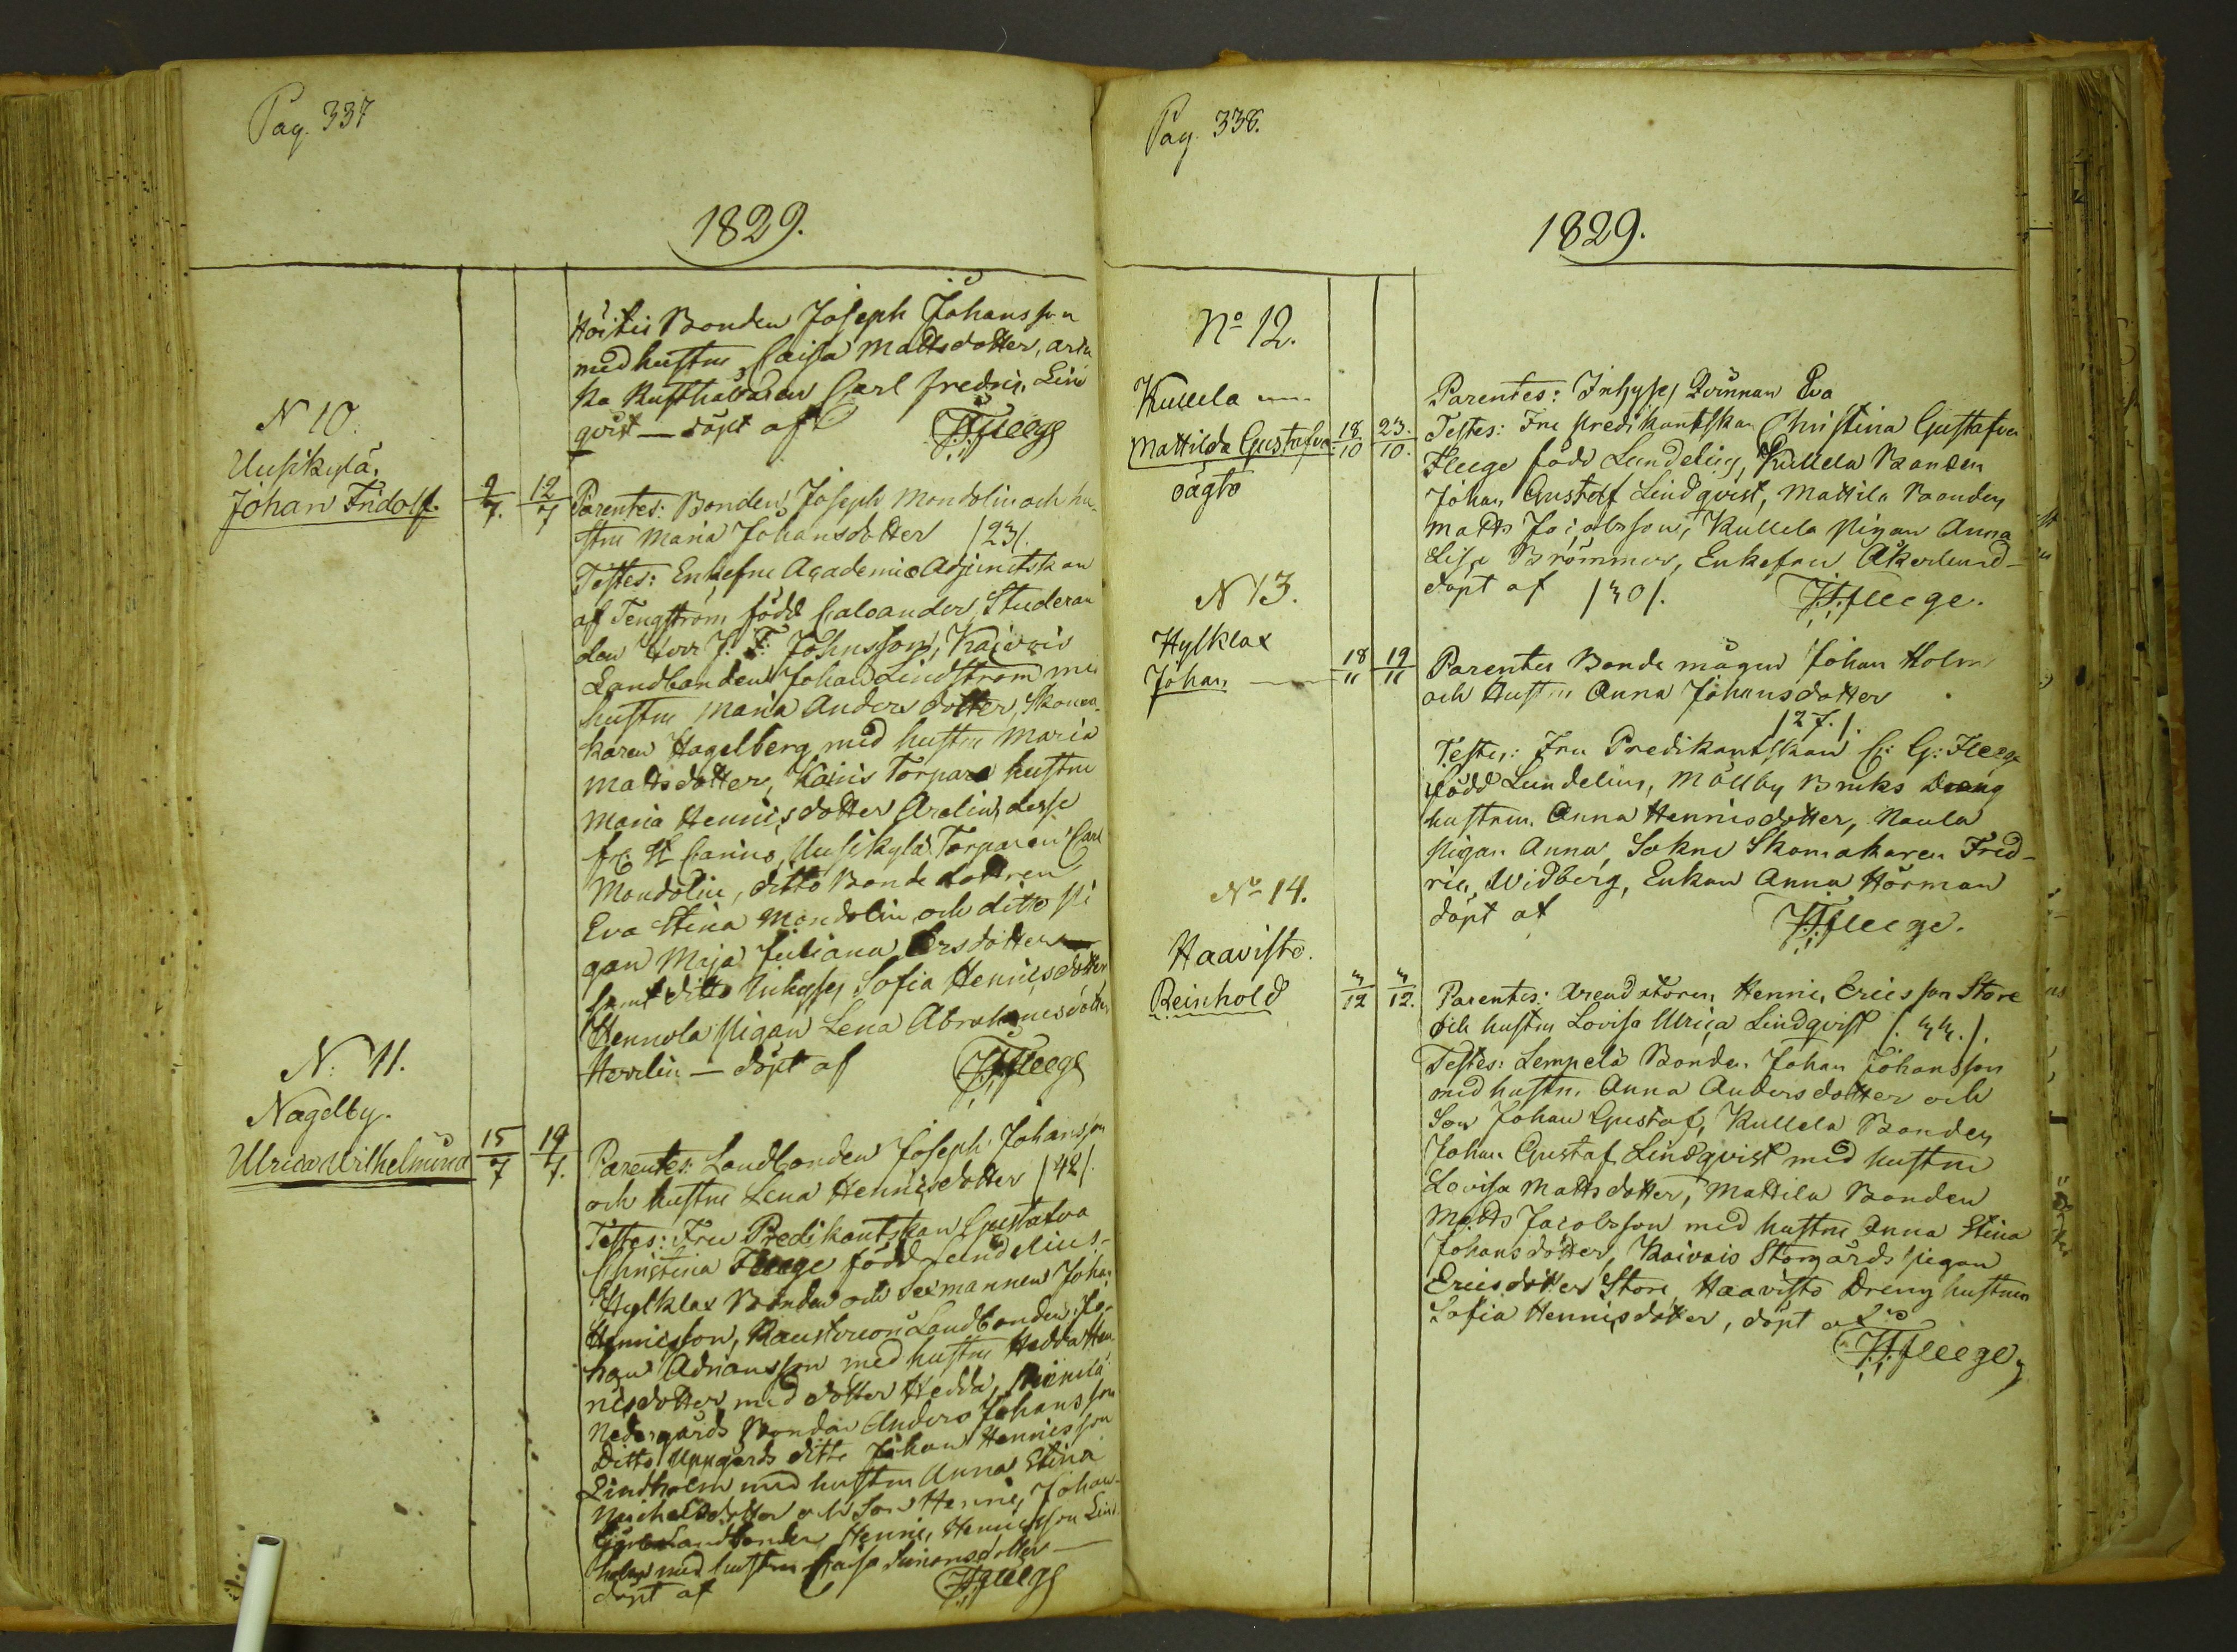 Pag. 337
1829.
Höitis Bonden Joseph Johansson
med hustru Caisa Mattsdotter, 
ka Rusthållaren Carl Fredric Lind
qvist — döpt af Fleege
N 10.
Uusikylä.
Johan Fridolf.
9/7. 12/7
Parentes: Bonden Joseph Mondolin och hu-
stru Maria Johansdotter /23/.
Testes: Enkefru Academie Adjunctskan
af Tengström född Caloander, Studeran
den Herr J. F. Johnsson, Kaivois
Landbonden Johan Lindström med
hustru Maria Andersdotter, Skoma-
karen Hagelberg med hustru Maria
Mattsdotter, Torpare hustru
Maria Hennicsdotter 
Uusikylä Torparen Carl
Mondolin, ditto Bonde dottren
Eva Stina Mondolin och ditto Pi
gan Maja Juliana 
samt ditto Inhyses Sofia Hennicsdotter
Hennola Pigan Lena Abrahamsdotter
Herrlin — döpt af Fleege
N. 11.
Nägelby.
Ulrica Wilhelmina
15/7 19/7.
Parentes: Landbonden Joseph Johansson
och hustru Lena Hennicsdotter /42/.
Testes: Fru Predikantskan Gustafva
Christina Fleege född Lundelius-
Hylklax Bonden och Sexmannen Johan
Hennicsson, Landbonden Jo-
han Adriansson med hustru Hedda Hen
nicsdotter med dotter Hedda,
Nedergårds Bonden Anders Johansson
Ditto Uppgårds ditto Johan Hennicsson
Lindholm med hustru Anna Stina
Michelsdotter och Son Henric Johan-
Landbonden Henric Hennicsson Lind
holm med hustru Caisa Simonsdotter —
döpt af Fleege
Pag. 338.
1829.
No 12.
Kullela
Mattilda Gustafva
oägta
18/10 23./10.
Parentes: Inhyses Qvinnan Eva
Testes: Fru Predikantskan Christina Gustafva
Fleege född Lundelius, Kullela Bonden
Johan Gustaf Lindqvist, Mattila Bonden
Matts Jacobsson, Kullela Pigan Anna
Lisa Brömmer, Enkefru Åkerlund —
döpt af /30/. Fleege.
N 13.
Hylklax
Johan
18/11 19/11
Parentes Bonde mågen Johan Holm
och Hustru Anna Johansdotter
/27./.
Testes: Fru Predikantskan C: G: Fleege
född Lundelius, Möllby Bruks Dreng
hustrun Anna Hennicsdotter, Naula
Pigan Anna, Sokne Skomakaren Fred-
ric Widberg, Enkan Anna Hörman
döpt af Fleege.
No 14.
Haavisto.
Reinhold
3/12 3/12.
Parentes: Arendatoren Henric Ericsson Store
och hustru Lovisa Ulrica Lindqvist /.33./.
Testes: Lempelä Bonden Johan Johansson
med hustru Anna Andersdotter och
Son Johan Gustaf, Kullela Bonden
Johan Gustaf Lindqvist med hustru
Lovisa Mattsdotter, Mattila Bonden
Matts Jacobsson med hustru Anna Stina
Johansdotter, Kaivois Storgårds Pigan
Ericsdotter Store, Haavisto Dreng hustrun
Sofia Hennicsdotter, döpt af
Fleege